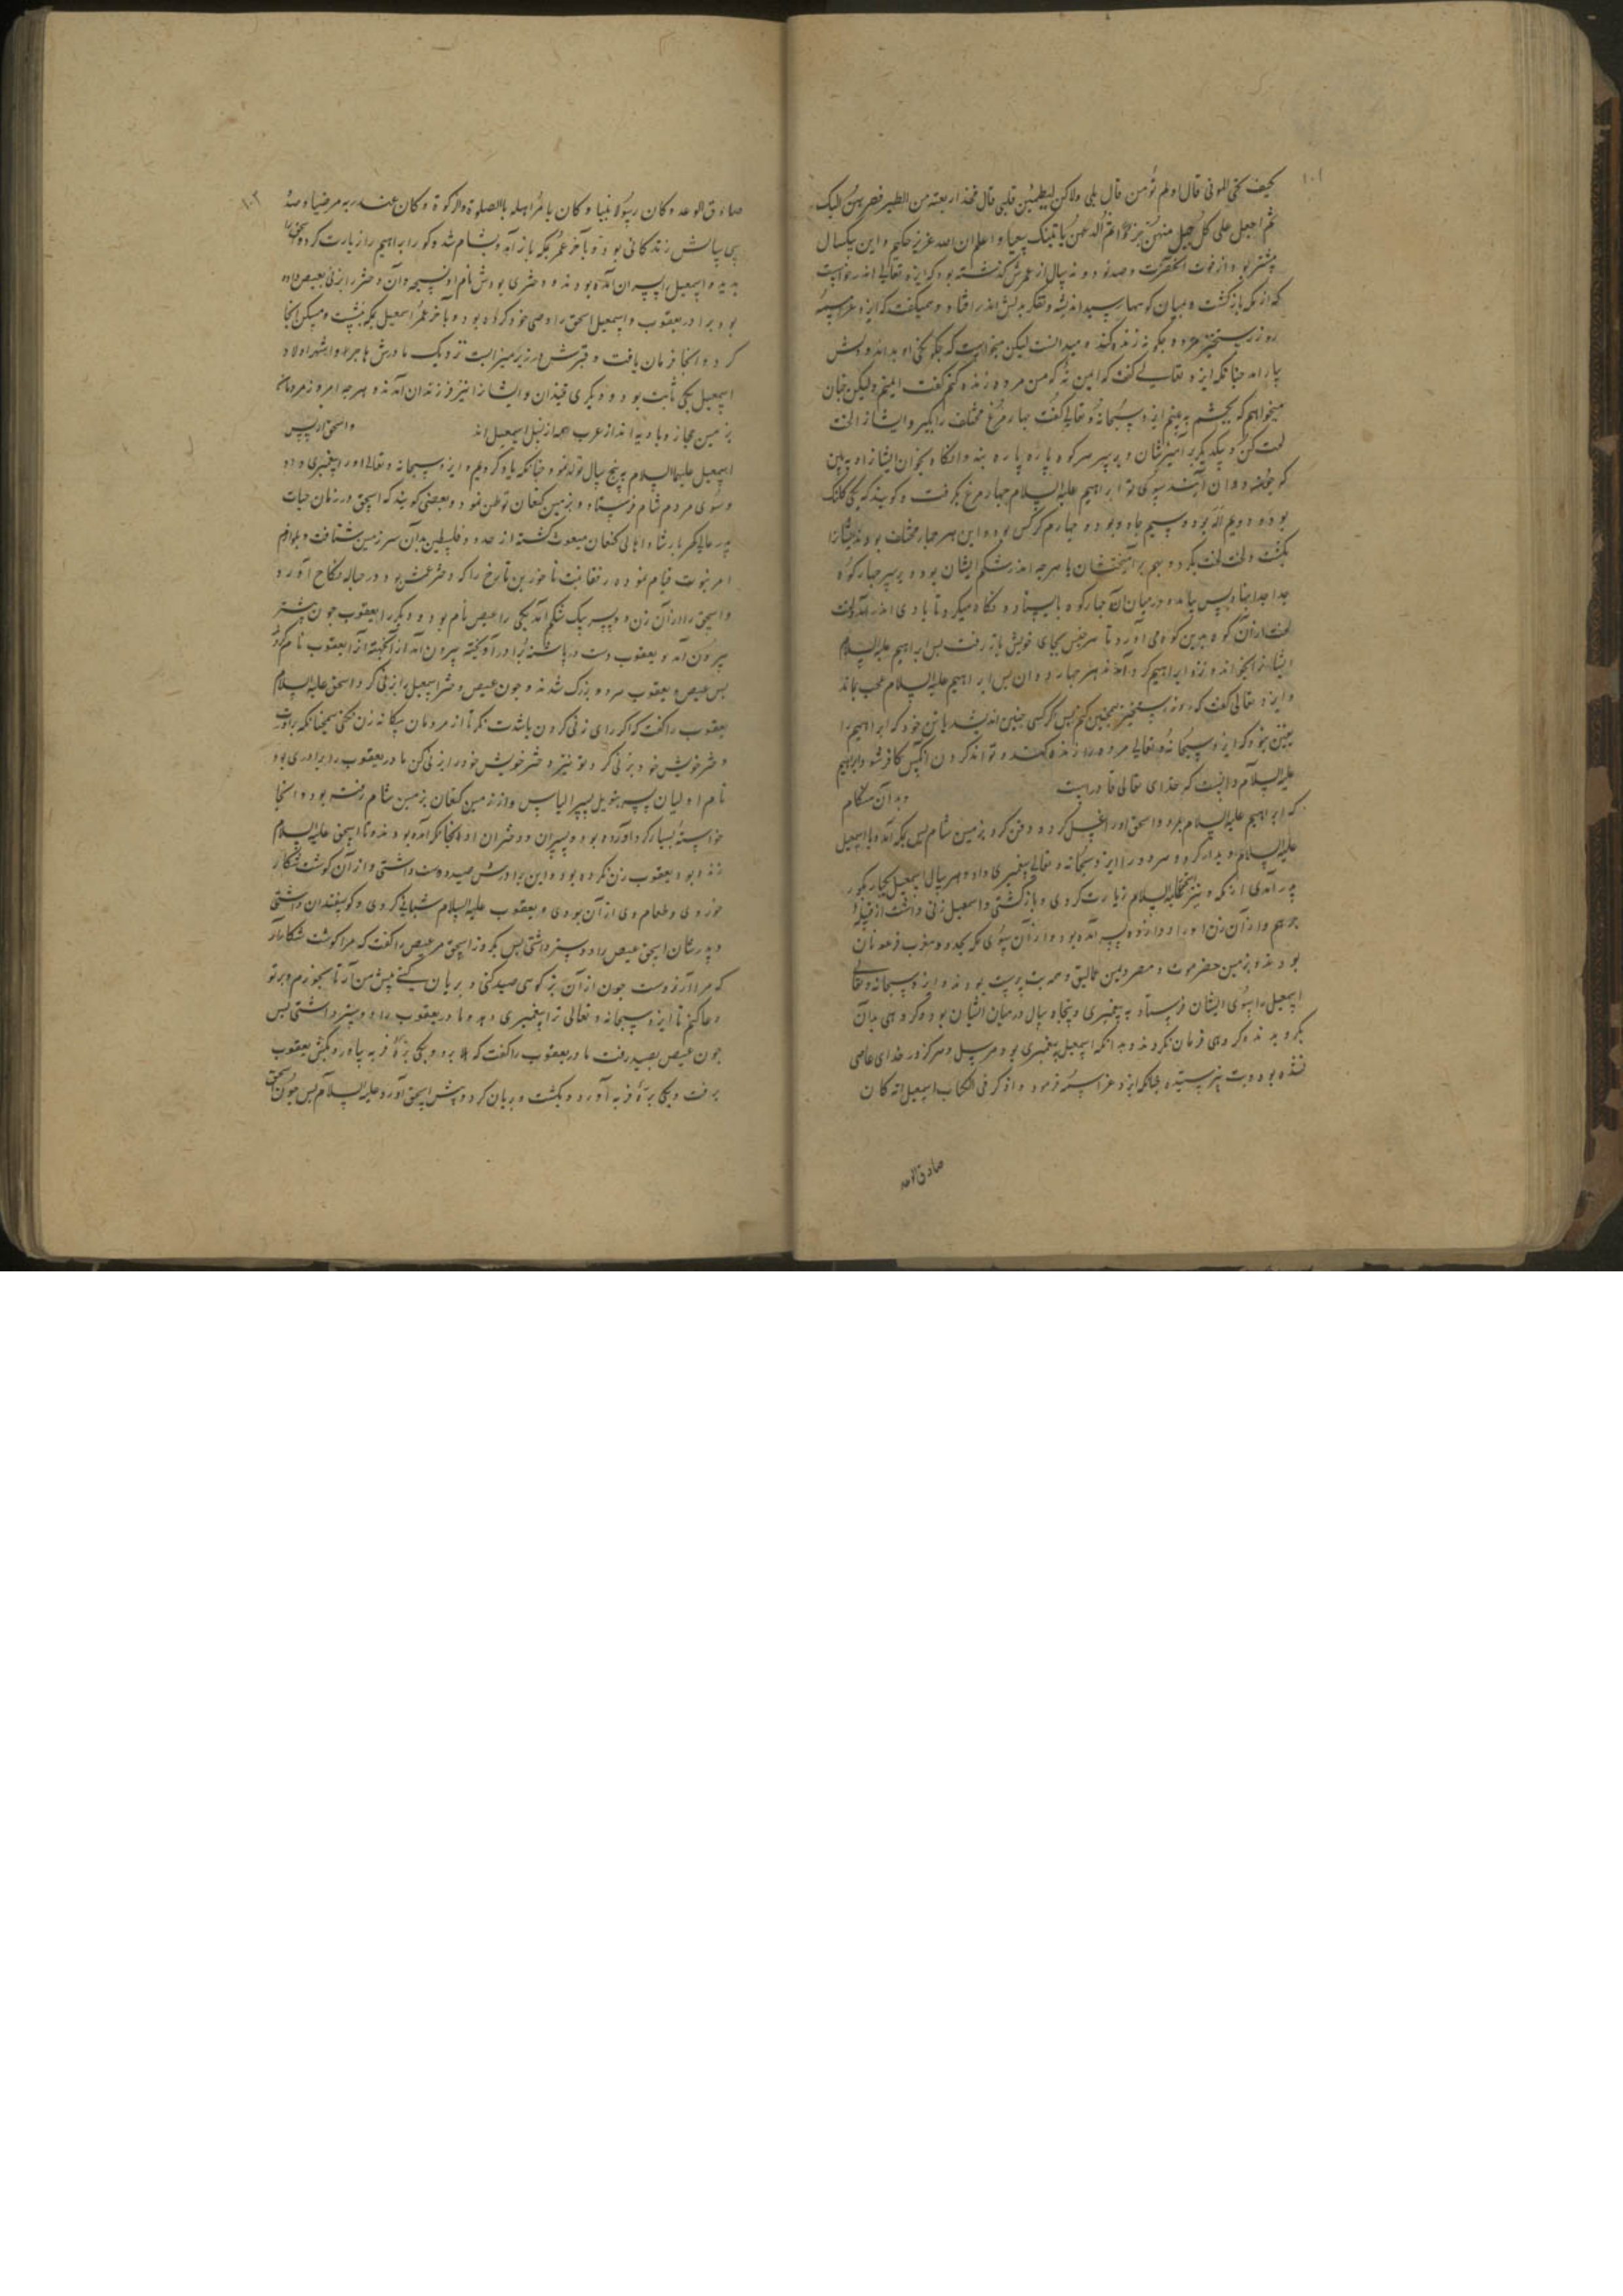 ۱۰۱
کیف تحیی الموتی قال اولم تؤمن قال بلی ولاکن لیطمئن قلبی قال فخذ اربعة من الطیر فصرهن الیک
ثم اجعل علی کل جبل منهن جزءا ثم ادعهن یاتینک سعیا و اعلم ان الله عزیز حکیم و این بیکسال
پیشتر بود از فوت آنحضرت وصد نود و نه سال از عمرش گذشته بود که ایزد تعالی اندر خواست
که از مکه بازگشت و میان کوهها رسید اندیشه و تفکر بدلش اندر افتاد و همیگفت که ایزد عز اسمه
روز رستخیز مرده چگونه زنده کند و میدانست لیکن میخواست که چگونگی او بداند و دلش
بیارامد چنانکه ایزد تعالی گفت که ایمن نه که من مرده زنده کنم گفت ایمنم ولیکن چنان
میخواهم که بچشم به بینم ایزد سبحانه و تعالی گفت چهار مرغ مختلف را بگیر و ایشانرا لخت
لخت کن و بیکدیگر بر آمیزشان و بر سر هر کوه پاره پاره بنه وانگاه بخوان ایشانرا و به بین
که چگونه دوان آیند سوی تو ابراهیم علیه السلام چهار مرغ بگرفت و گویند که یکی کلنگ
بود و دویم اله بود و سیم چاه و بود و چهارم کرکس بود و این هر چهار مختلف بودند ایشانرا
بکشت و لخت لخت بکرد و بهم بر آمیختشان با هر چه اندر شکم ایشان بود و بر سر چهار کوه
جدا جدا نهاد پس بیامد و در میان آن چهار کوه بایستاد و نگاه میکرد تا بادی اندر آمد و لخت
لخت از آن کوه بدین کوه می آورد تا هر جنس بجای خویش باز رفت پس ابراهیم علیه السلام
ایشانرا بخواند و نزد ابراهیم گرد آمدند هر چهار دوان پس ابراهیم علیه السلام عجب بماند
و ایزد تعالی گفت که روز رستخیز همچنین کنم پس اگر کسی چنین اندیشد با تن خود که ابراهیم را
یقین نبود که ایزد سبحانه و تعالی مرده را زنده کند و تواند کردن آنکس کافر شود و ابراهیم
علیه السلام دانست که خدای تعالی قادر است و بدان هنگام
که ابراهیم علیه السلام بمرد و اسحق اورا غسل کرد و دفن کرد بزمین شام پس بمکه آمد و با اسمعیل
علیه السلام دیدار کرد و هر دو را ایزد سبحانه و تعالی پیغمبری داد و هر سال اسمعیل یکبار بگور
پدر آمدی از مکه و نیز اسحق علیه السلام زیارت کردی و بازگشتی و اسمعیل زنی داشت از قبیله
جرهم و از آن زن اورا دوازده پسر آمده بود و از آن سوی مکه بحدود مغرب فرعونان
بودند و بزمین حضرموت و مصر و یمن عمالیق و همه بت پرست بودند و ایزد سبحانه و تعالی
اسمعیل را بسوی ایشان فرستاد به پیغمبری و پنجاه سال در میان ایشان بود و گروهی بدان
بگرویدند و گروهی فرمان نکردند و بدانکه اسمعیل پیغمبری بود مرسل و هرگز در خدای عاصی
نشده بود و بت نپرستیده چنانکه ایزد عز اسمه فرمود و اذکر فی الکتاب اسمعیل انه کان
صادق الوعد
۱۰۲
صادق الوعد و کان رسولا نبیا و کان یامر اهله بالصلوة والزکوة و کان عند ربه مرضیا و صد
سی سالش زندگانی بود و بآخر عمر بمکه باز آمد و بشام شد و گور ابراهیم را زیارت کرد و اسحق را
بدید و اسمعیل را پسران آمده بودند و دختری بودش نام او نسیمه و آن دختر را بزنی بعیص داده
بود برادر یعقوب و اسمعیل اسحق را وصی خود کرده بود و بآخر عمر اسمعیل بمکه بنشست و مسکن آنجا
کرد و آنجا فرمان یافت و قبرش در زیر میزابست نزدیک مادرش هاجر و اشهر اولاد
اسمعیل یکی ثابت بود و دیگری قیدان و ایشانرا نیز فرزندان آمدند و هر چه امروز مردمان
بزمین حجاز و بادیه اند از عرب همه از نسل اسمعیل اند و اسحق از پس
اسمعیل علیهما السلام به پنج سال تولد نمود چنانکه یاد کردیم و ایزد سبحانه و تعالی اورا پیغمبری داد
و سوی مردم شام فرستاد و بزمین کنعان توطن نمود و بعضی گویند که اسحق در زمان حیات
پدر عالی گهر بارشاد اهالی کنعان مبعوث گشته از حدود فلسطین بدان سرزمین شتافت و بلوازم
امر نبوت قیام نموده رفقا بنت ناحور بن تارخ را که دختر عمش بود در حباله نکاح آورد
و اسحق را از آن زن دو پسر بیک شکم آمد یکی را عیص نام بود و دیگر را یعقوب چون پیشتر
بیرون آمد و یعقوب دست در پاشنه برادر آویخته بیرون آمد از آنجهت او را یعقوب نام کرد
پس عیص و یعقوب هر دو بزرگ شدند و چون عیص دختر اسمعیل را بزنی کرد اسحق علیه السلام
یعقوب را گفت که اگر رای زنی کردن باشدت نگر تا از مردمان بیگانه زن نکنی همچنانکه برادرت
دختر خویش خود بزنی کرد تو نیز دختر خویش خود را بزنی کن مادر یعقوب را برادری بود
نام او لیان پسر بتویل پسر الیاس و از زمین کنعان بزمین شام رفته بود و آنجا
خواسته بسیار گرد آورده بود و پسران و دختران او را آنجا گرد آمده بودند و تا اسحق علیه السلام
زنده بود یعقوب زن نکرده بود و این برادرش صید دوست داشتی و از آن گوشت شکار
خوردی و طعام وی از آن بودی و یعقوب علیه السلام شبانی کردی و گوسفندان داشتی
و پدرشان اسحق عیص را دوستر داشتی پس یکروز اسحق مر عیص را گفت که مرا گوشت شکار آر
که مرا آرزوست چون از آن بز کوهی صید کنی و بریان کنی پیش من آر تا بخورم و بر تو
دعا کنم تا ایزد سبحانه و تعالی ترا پیغمبری دهد و مادر یعقوب را دوستر داشتی پس
چون عیص بصید رفت مادر یعقوب را گفت که برو و یکی بره فربه بیاور و بکش یعقوب
برفت و یکی بره فربه آورد و بکشت و بریان کرد و پیش اسحق آورد علیه السلام پس چون اسحق